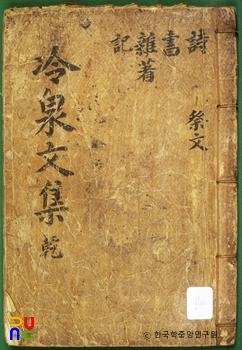 詩
書
雜著
記
祭文
冷泉文集 乾
PUO
© 한국학중앙연구원